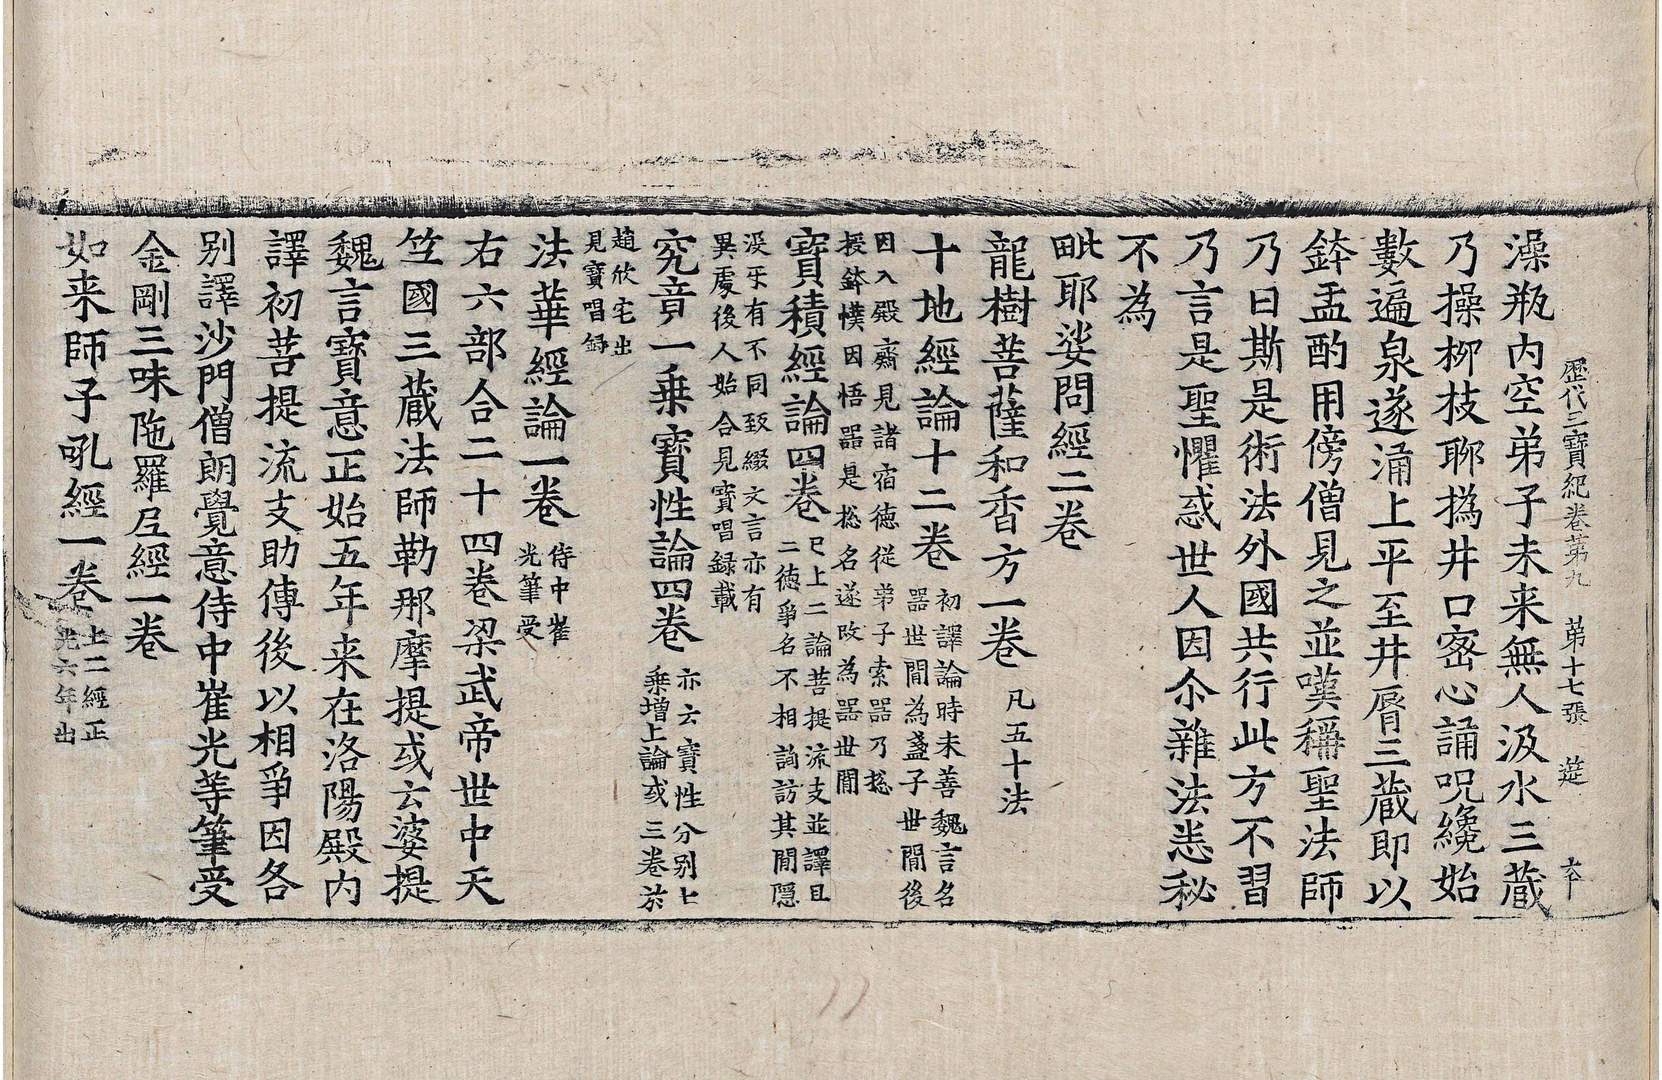 歷代三寶紀卷第九 第十七張 筵
澡瓶內空弟子未来無人汲水三藏
乃操柳枝聊撝井口密心誦呪纔始
數遍泉遂涌上平至井脣三藏即以
鉢盂酌用傍僧見之並嘆稱聖法師
乃曰斯是術法外國共行此方不習
乃言是聖懼惑世人因尒雜法悉秘
不為
毗耶娑問經二卷
龍樹菩薩和香方一卷 凡五十法
十地經論十二卷 初譯論時未善魏言名
器世間為盞子世間後
因入殿齋見諸宿徳從弟子索器乃捴
授鉢襆因悟器是捴名遂改為器世間
寶積經論四卷 已上二論菩提流支並譯且
二徳爭名不相詢訪其間隱
沒牙有不同致綴文言亦有
異處後人始合見寶唱録載
究竟一乗寶性論四卷 亦云寶性分別七
乗增上論或三卷於
趙欣宅出
見寶唱録
法華經論一卷 侍中崔
光筆受
右六部合二十四卷梁武帝世中天
竺國三藏法師勒那摩提或云婆提
魏言寶意正始五年来在洛陽殿內
譯初菩提流支助傳後以相爭因各
別譯沙門僧朗覺意侍中崔光等筆受
金剛三味陁羅尼經一卷
如来師子吼經一卷 上二經正
光六年出